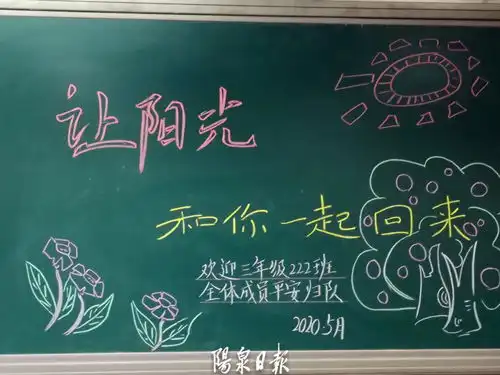 让阳光
和你一起回来
欢迎三年级222班
全体成员平安归队
2020.5月
陽泉日报